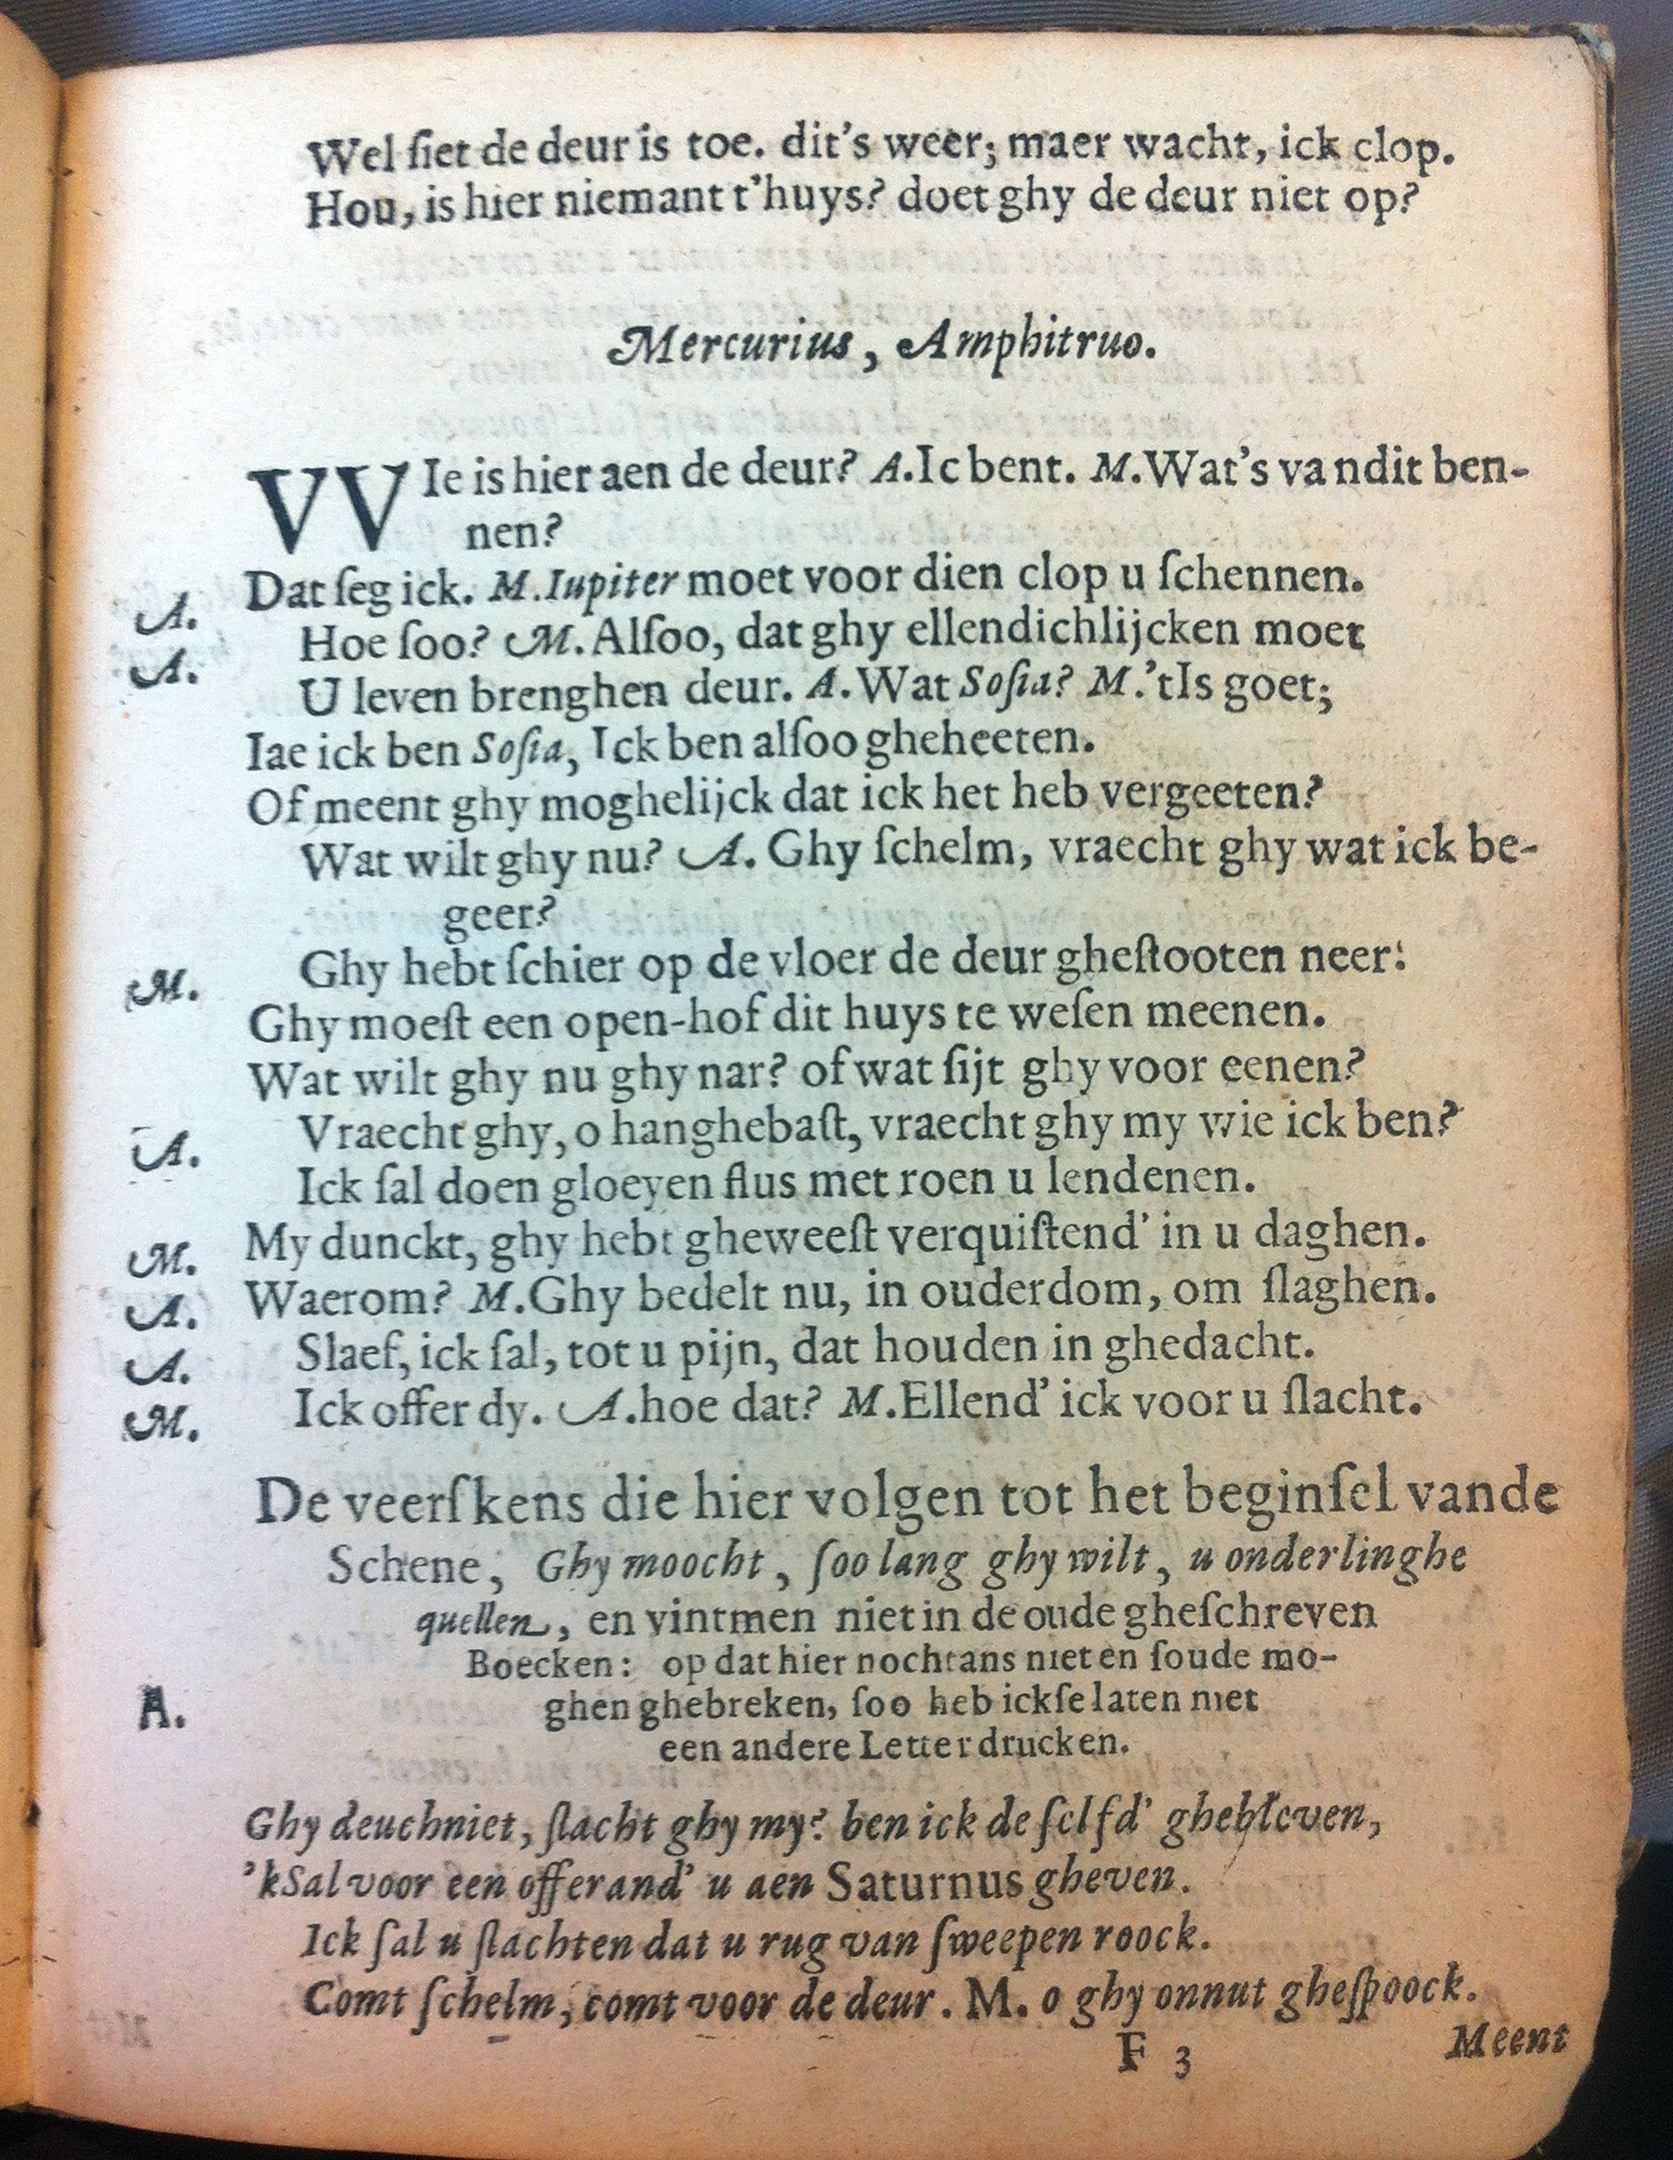 Wel ſiet de deur is toe. dit's weer; maer wacht, ick clop.
Hou, is hier niemant t'huys? doet ghy de deur niet op?
Mercurius, Amphitruo.
VVIe is hier aen de deur? A. Ic bent. M. Wat's van dit ben-
nen?
A. Dat ſeg ick. M. Iupiter moet voor dien clop u ſchennen.
A. Hoe ſoo? M. Alſoo, dat ghy ellendichlijcken moet
U leven brenghen deur. A. Wat Soſia? M. 'tIs goet;
Iae ick ben Soſia, Ick ben alſoo gheheeten.
Of meent ghy moghelijck dat ick het heb vergeeten?
Wat wilt ghy nu? A. Ghy ſchelm, vraecht ghy wat ick be-
geer?
M. Ghy hebt ſchier op de vloer de deur gheſtooten neer:
Ghy moeſt een open-hof dit huys te weſen meenen.
Wat wilt ghy nu ghy nar? of wat ſijt ghy voor eenen?
A. Vraecht ghy, o hanghebaſt, vraecht ghy my wie ick ben?
Ick ſal doen gloeyen flus met roen u lendenen.
M. My dunckt, ghy hebt gheweeſt verquiſtend' in u daghen.
A. Waerom? M. Ghy bedelt nu, in ouderdom, om ſlaghen.
A. Slaef, ick ſal, tot u pijn, dat houden in ghedacht.
M. Ick offer dy. A. hoe dat? M. Ellend' ick voor u ſlacht.
De veerſkens die hier volgen tot het beginſel vande
Schene, Ghy moocht, ſoo lang ghy wilt, u onderlinghe
quellen, en vintmen niet in de oude gheſchreven
Boecken: op dat hier nochtans niet en ſoude mo-
ghen ghebreken, ſoo heb ickſe laten met
een andere Letter drucken.
A. Ghy deuchniet, ſlacht ghy my? ben ick de ſelfd' ghebleven,
'kSal voor een offerand' u aen Saturnus gheven.
Ick ſal u ſlachten dat u rug van ſweepen roock.
Comt ſchelm, comt voor de deur. M. o ghy onnut gheſpoock.
F 3 Meent